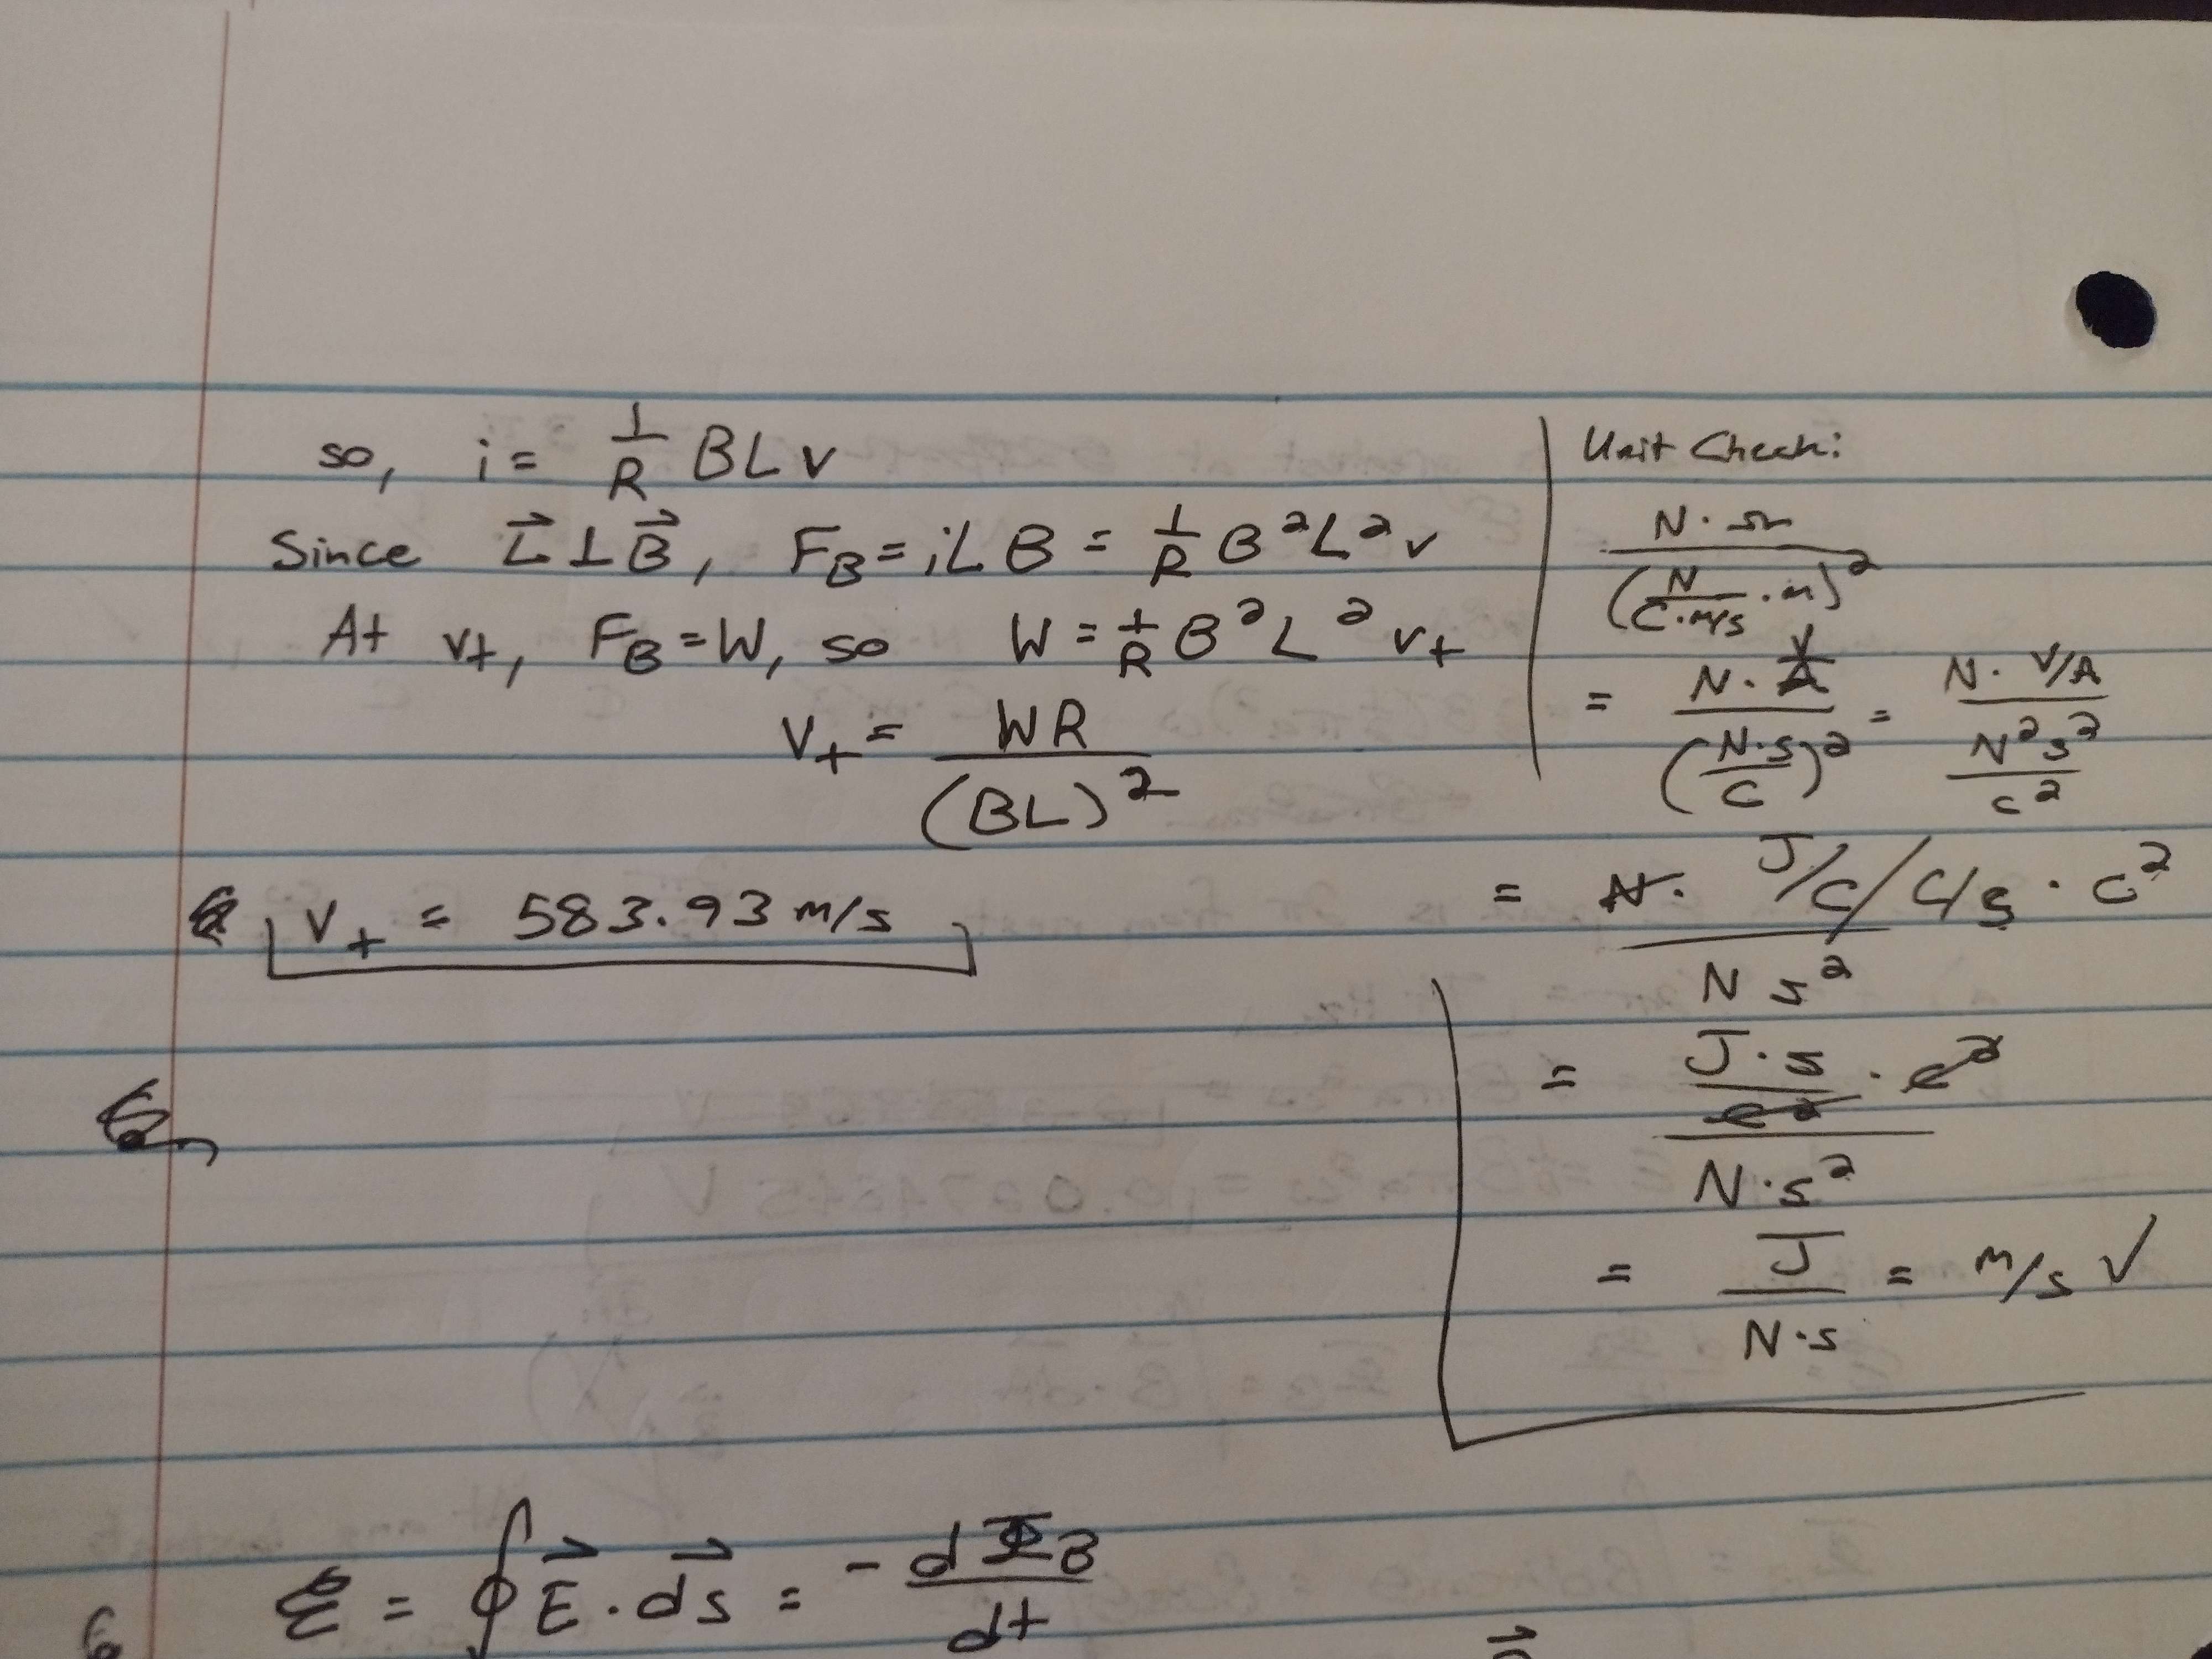 so, i = 1/R BLv
Since L⃗ ⊥ B⃗, F_B = iLB = 1/R B²L²v
At v_t, F_B = W, so W = 1/R B²L²v_t
v_t = WR/(BL)²
v_t = 583.93 m/s
Unit Check:
N·Ω/(N/(C·m/s)·m)²
= N·V/A/(N·s/C)² = N·V/A/(N²s²/C²)
= N·J/C/C/s·C²/(N s²)
= (J·s/C²·C²)/(N·s²)
= J/(N·s) = m/s ✓
6 ℰ = ∮E⃗·ds⃗ = -dΦ_B/dt